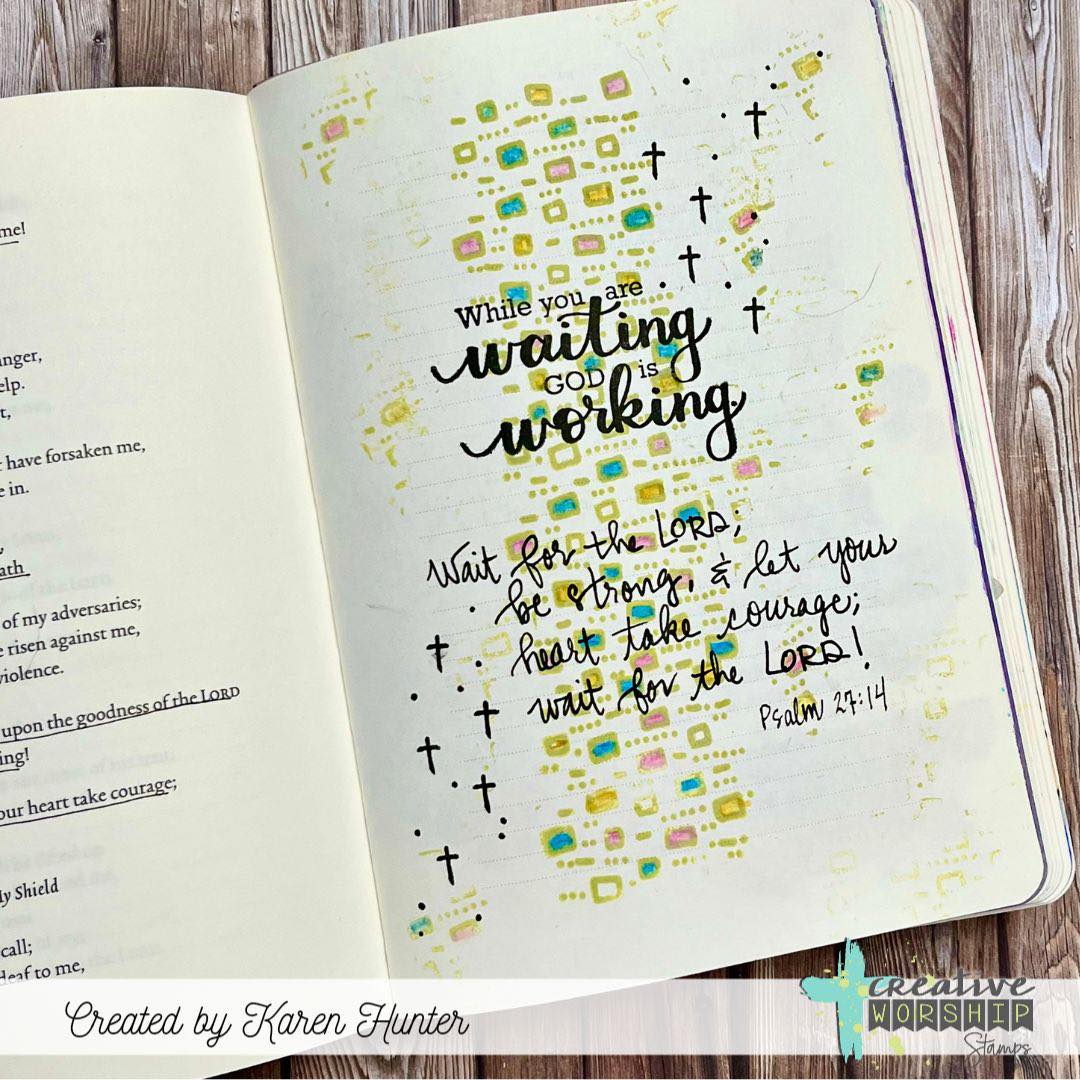 me!
help.
have forsaken me,
in.
of my adversaries;
risen against me,
violence.
upon the goodness of the LORD
heart take courage;
Shield
call;
deaf to me,
While you are
waiting
GOD is
working.
Wait for the LORD;
be strong, & let your
heart take courage;
wait for the LORD!
Psalm 27:14
Created by Karen Hunter
creative
WORSHIP
Stamps